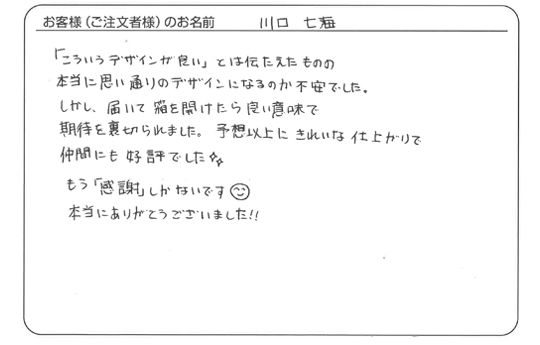 お客様（ご注文者様）のお名前 川口 七海
「こういうデザインが良い」とは伝たえたものの
本当に思い通りのデザインになるのか不安でした。
しかし、届いて箱を開けたら良い意味で
期待を裏切られました。予想以上にきれいな仕上がりで
仲間にも好評でした
もう「感謝」しかないです
本当にありがとうございました!!